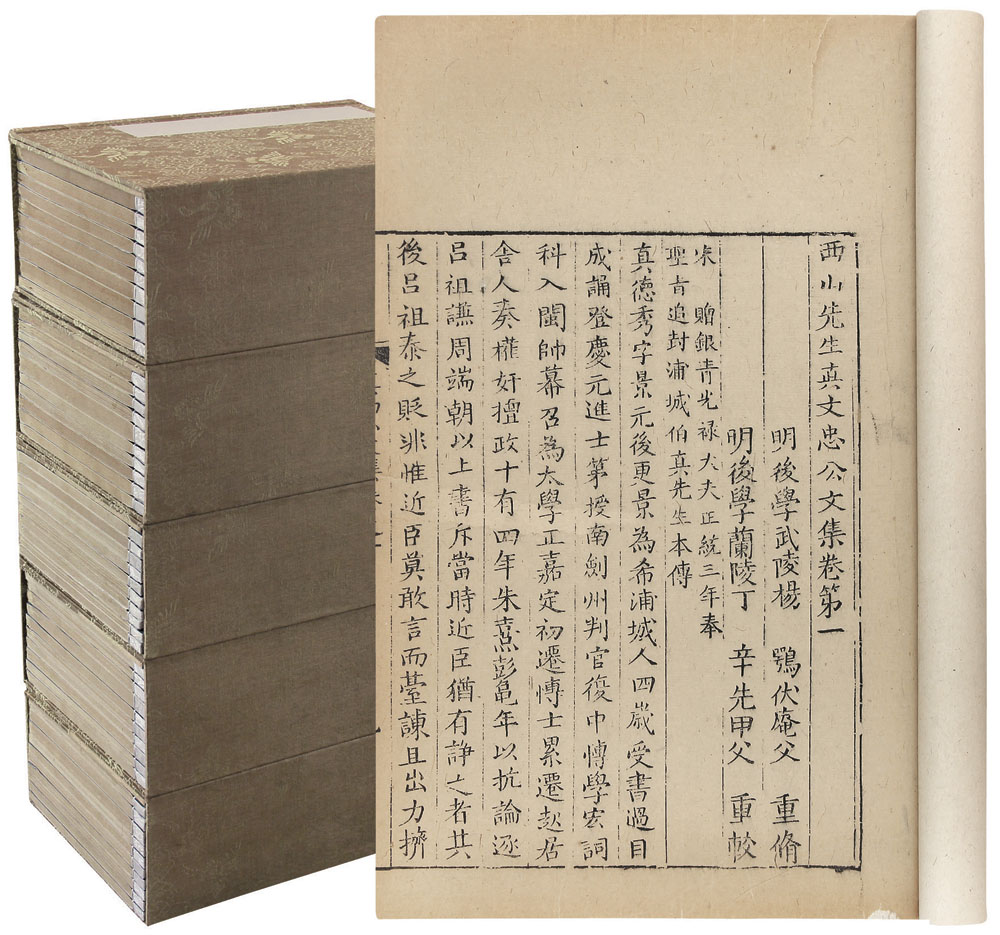 西山先生真文忠公文集卷第一
明後學武陵楊 鶚伏庵父 重脩
明後學蘭陵丁 辛先甲父 重較
宋 贈銀青光祿大夫正統三年奉
聖旨追封浦城伯真先生本傳
真德秀字景元後更景為希浦城人四歲受書過目
成誦登慶元進士第授南劍州判官復中博學宏詞
科入閩帥幕召為太學正嘉定初遷博士累遷起居
舍人奏權奸擅政十有四年朱熹彭龜年以抗論逐
呂祖謙周端朝以上書斥當時近臣猶有諍之者其
後呂祖泰之貶非惟近臣莫敢言而臺諫且出力擠